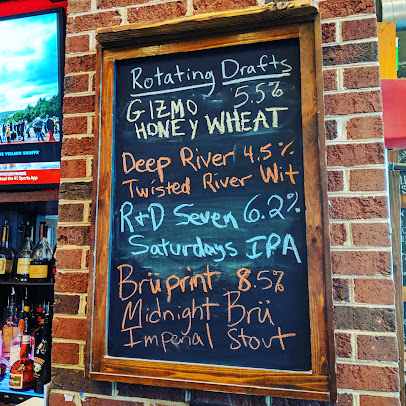 Rotating Drafts
GIZMO 5.5%
HONEY WHEAT
Deep River 4.5%
Twisted River Wit
R+D Seven 6.2%
Saturdays IPA
Brüprint 8.5%
Midnight Brü
Imperial Stout